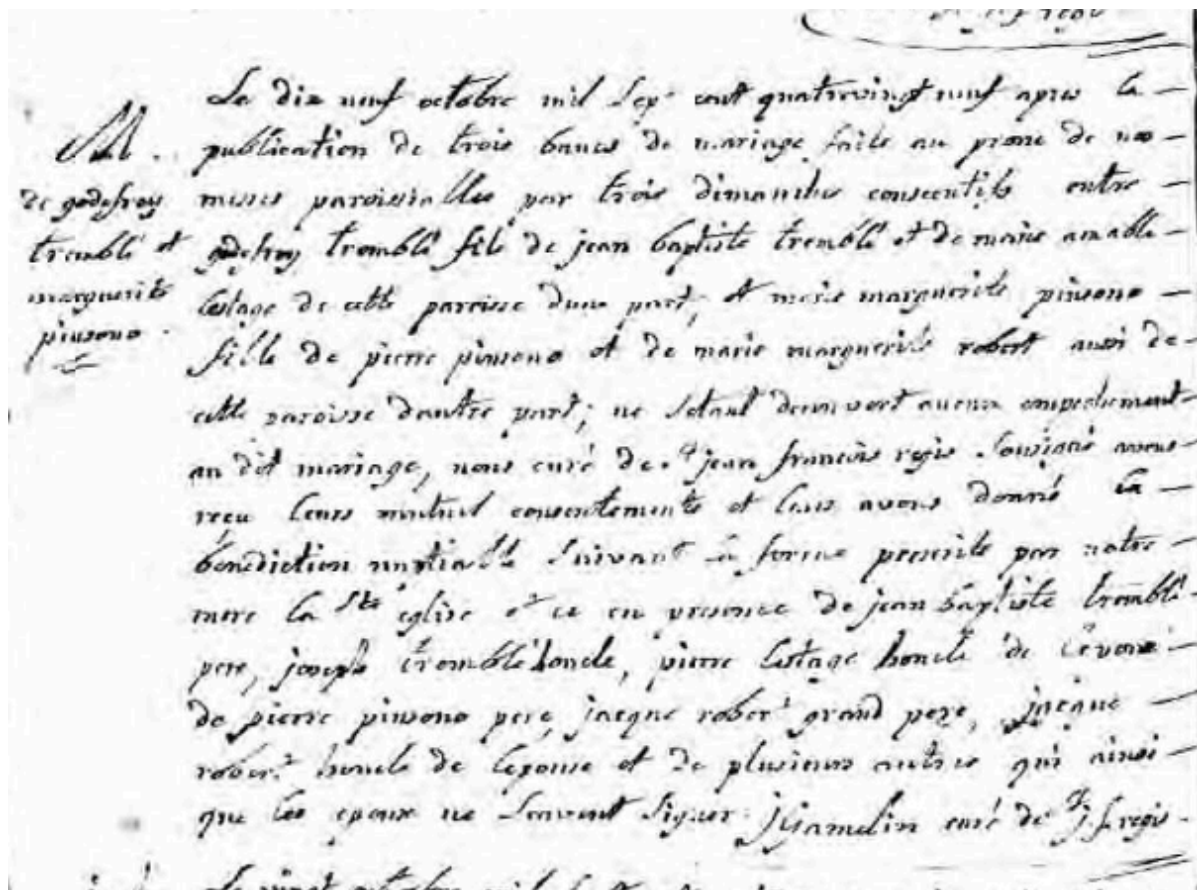 M.
de godefroy
tremblé et
marguerite
pinsono.
Le dix neuf octobre mil sept cent quatrevingt neuf apres la
publication de trois bancs de mariage faite au prone de nos
messes paroissialles par trois dimanches consecutifs entre
godefroy tremblé fils de jean baptiste tremblé et de marie amable
lestage de cette paroisse dune part, et marie marguerite pinsono
fille de pierre pinsono et de marie marguerite robert aussi de
cette paroisse dautre part; ne setant decouvert aucun empechement
au dit mariage, nous curé de st jean francois regis soussigné avons
reçu leurs mutuel consentements et leurs avons donné la
benediction nuptialle suivant la forme prescrite par notre
mere la ste eglise et ce en presence de jean baptiste tremblé
pere, joseph tremblé honcle, pierre lestage honcle de l'epoux
de pierre pinsono pere, jacque robert grand pere, jacque
robert honcle de l'epouse et de plusieurs autres qui ainsi
que les epoux ne scavent signer. jgamelin curé de st j. f. regis.
Le vingt octobre mil